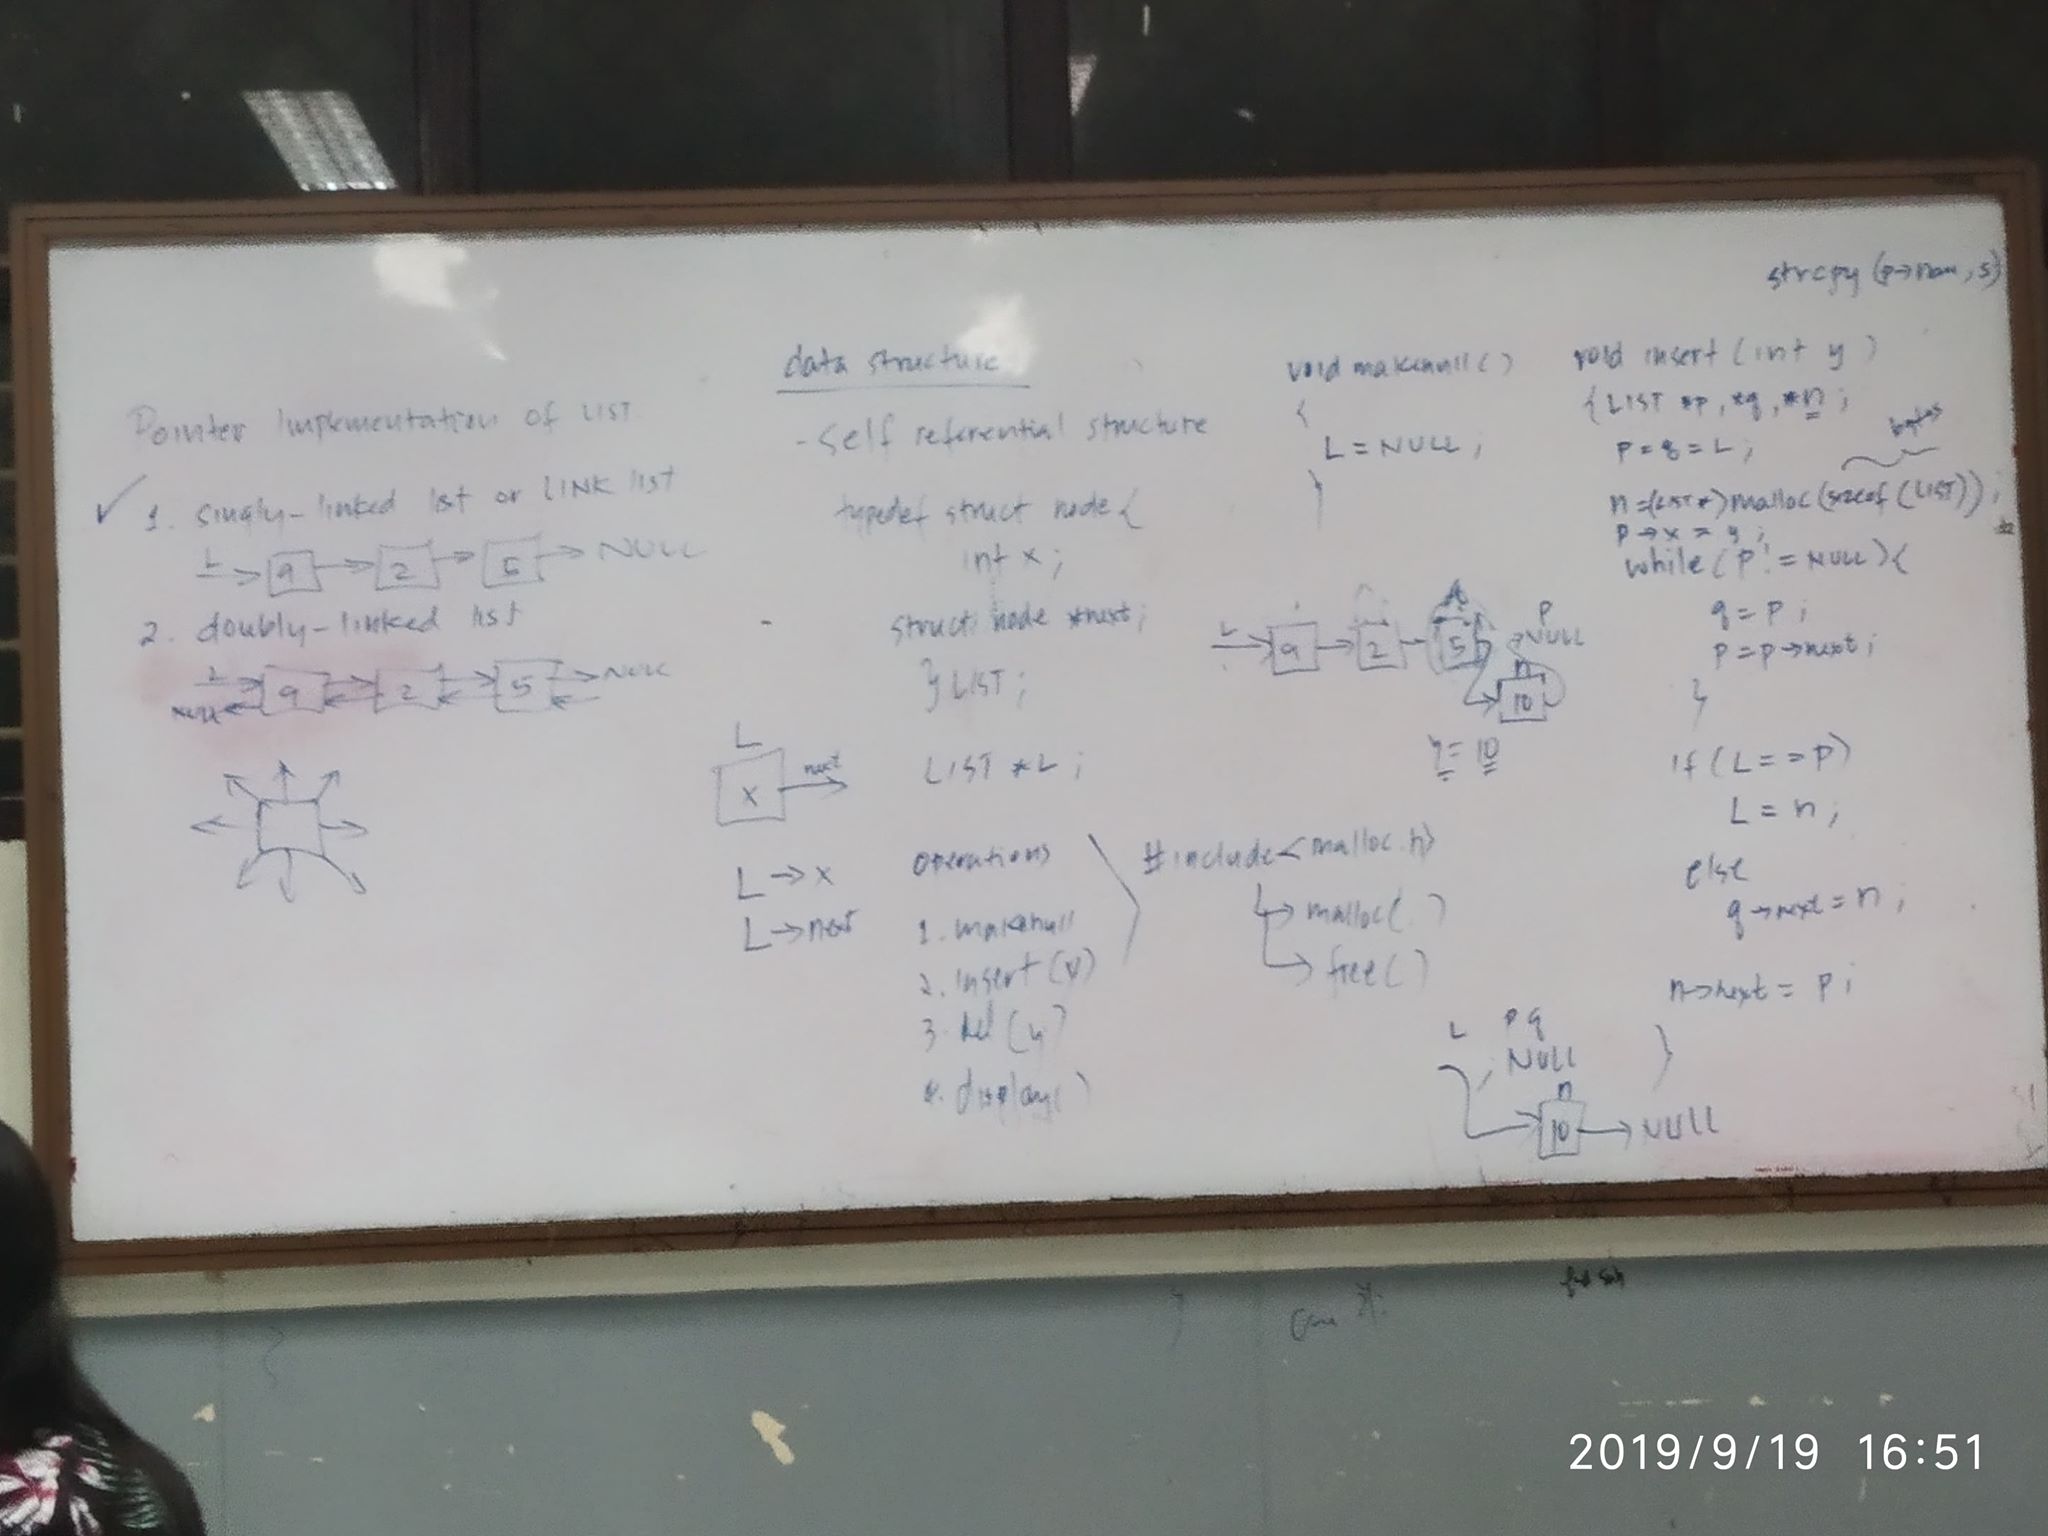 strcpy (p→nam, s)
Pointer Implementation of LIST
✓ 1. singly-linked list or LINK list
L 9 2 5 NULL
2. doubly-linked list
L 9 2 5 NULL
NULL
data structure
- self referential structure
typedef struct node {
int x ;
struct node *next ;
} LIST ;
L
x next
LIST *L ;
L → x
L → next
operations
1. makenull
2. insert (y)
3. del (y)
4. display( )
#include <malloc.h>
malloc( )
free( )
void makenull ( )
{
L = NULL ;
}
L 9 2 5 NULL
P
n
10
y = 10
void insert (int y )
{ LIST *p, *q, *n ;
p = q = L ;
bytes
n = (LIST *) malloc (sizeof (LIST)) ;
p → x = y ;
while ( p != NULL) {
q = p ;
p = p → next ;
}
if ( L == p )
L = n ;
else
q → next = n ;
n → next = p ;
}
L p q
NULL
n
10 NULL
2019/9/19 16:51